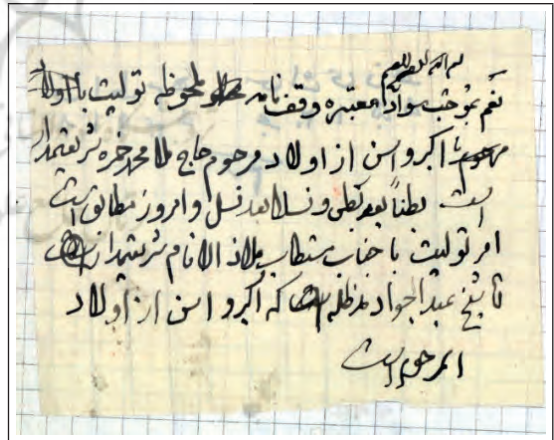 بسم الله الرحمن الرحیم
نعم بموجب سواد معتبره وقف نامه ملحوظه تولیت با اولاد
اکبر و اسن از اولاد مرحوم حاج ملا محمد حمزه شریعتمدار
است بطناً بعد بطن و نسلا بعد نسل و امروز مطابق
امر تولیت با جناب مستطاب ملاذ الانام شریعتمدار
شیخ عبدالجواد مدظله است که اکبر و اسن از اولاد
المرحوم است